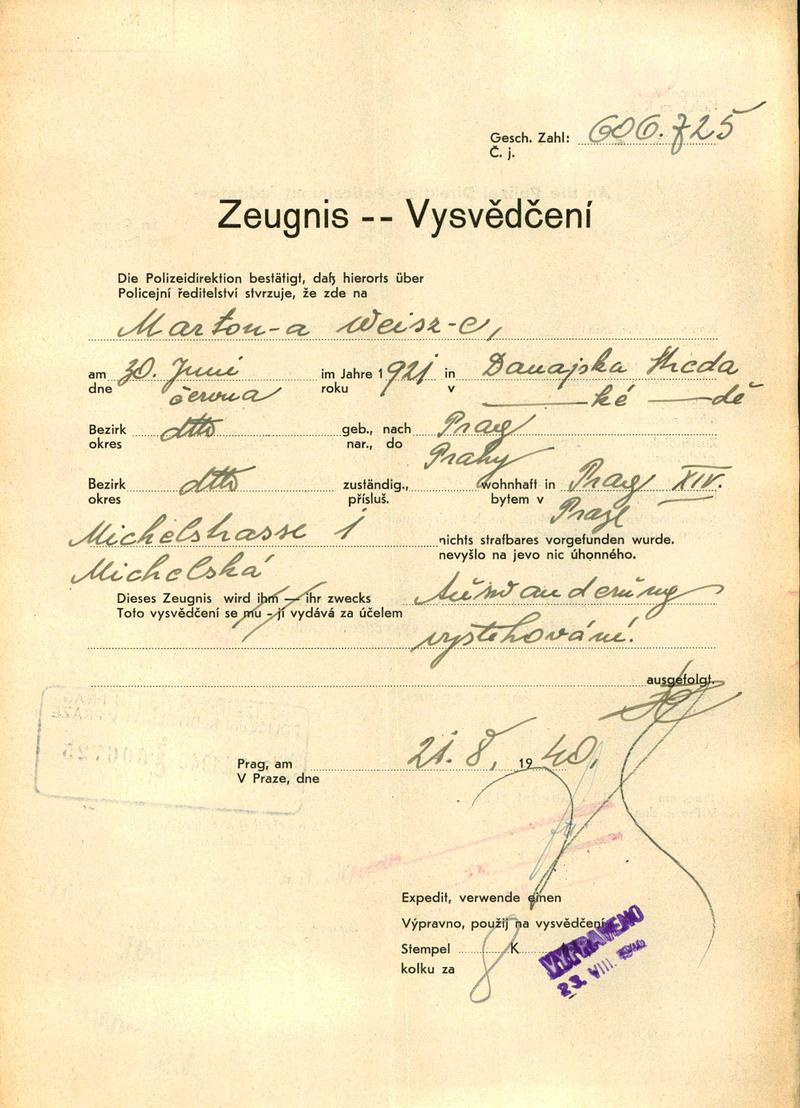 Gesch. Zahl: 606.725
Č. j.
Zeugnis -- Vysvědčení
Die Polizeidirektion bestätigt, daß hierorts über
Policejní ředitelství stvrzuje, že zde na
Marton-a Weisz-e,
am 30. Juni im Jahre 1921 in Danajska Streda
dne června roku v ké dě
Bezirk dtto geb., nach Prag
okres nar., do Prahy
Bezirk dtto zuständig., wohnhaft in Prag XIV.
okres přísluš. bytem v Praze
Michelstrasse 1 nichts strafbares vorgefunden wurde.
Michelská nevyšlo na jevo nic úhonného.
Dieses Zeugnis wird ihm — ihr zwecks Auswanderung
Toto vysvědčení se mu - jí vydává za účelem
vystěhování.
ausgefolgt.
Prag, am 21. 8. 1940.
V Praze, dne
Expedit, verwende einen
Výpravno, použij na vysvědčení
Stempel 8 K
kolku za
VYPRAVENO
23. VIII. 1940